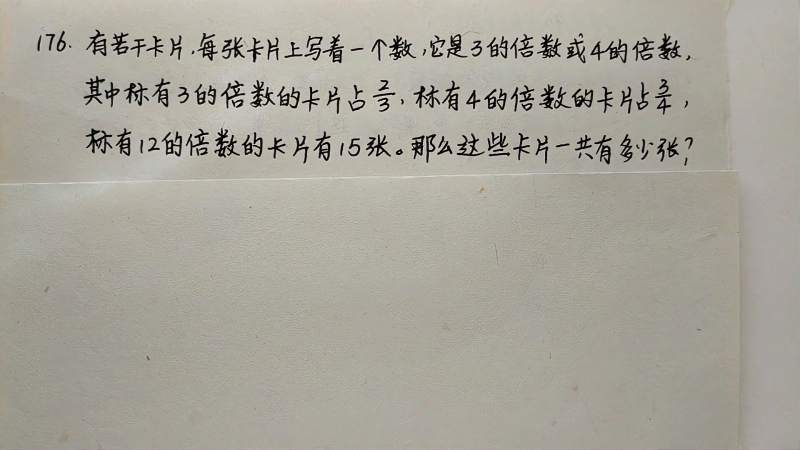 176. 有若干卡片,每张卡片上写着一个数,它是3的倍数或4的倍数,
其中标有3的倍数的卡片占2/3,标有4的倍数的卡片占3/4,
标有12的倍数的卡片有15张。那么这些卡片一共有多少张?